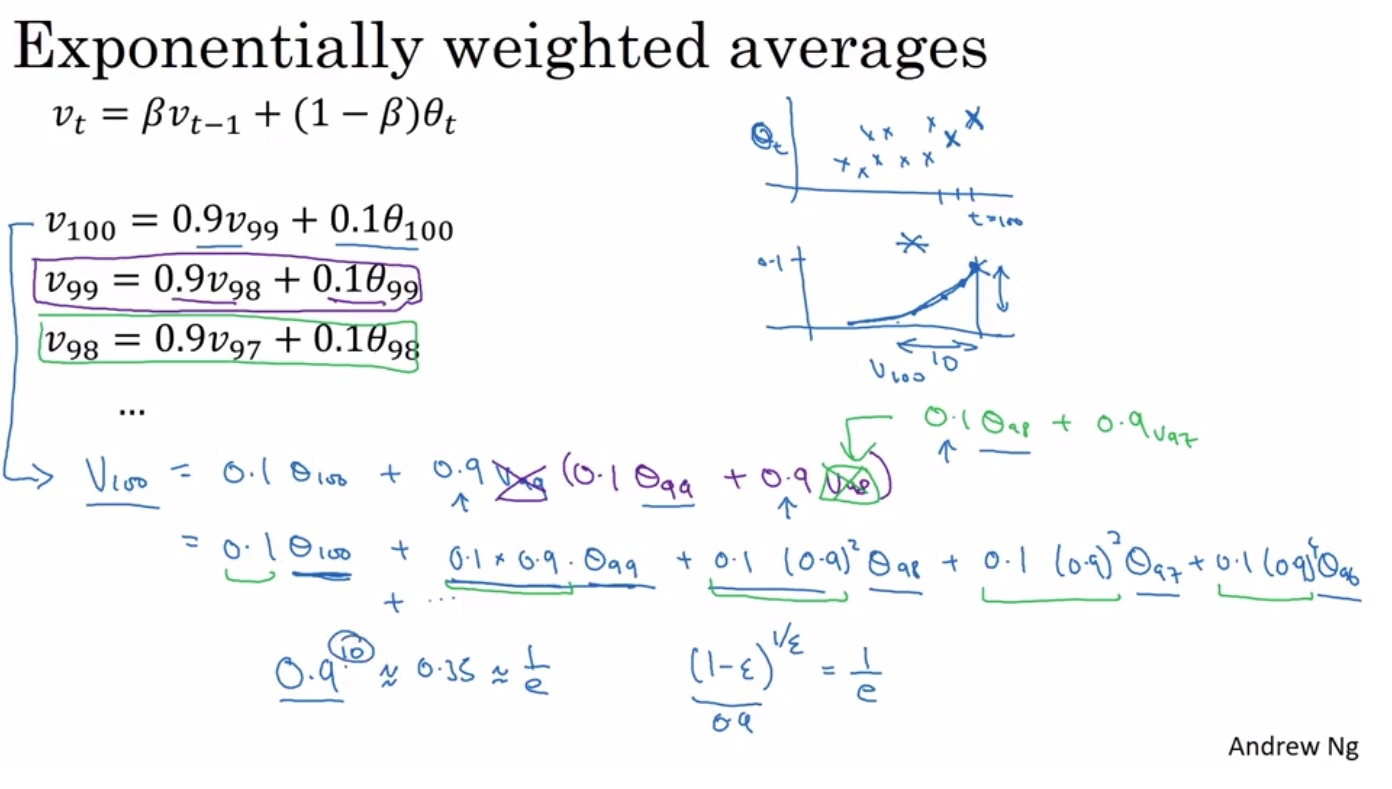 Exponentially weighted averages
v_t = βv_{t−1} + (1 − β)θ_t
θ_t
t=100
v_100 = 0.9v_99 + 0.1θ_100
v_99 = 0.9v_98 + 0.1θ_99
v_98 = 0.9v_97 + 0.1θ_98
...
0.1
10
V_100
0.1 θ_98 + 0.9 v_97
V_100 = 0.1 θ_100 + 0.9 V_99 (0.1 θ_99 + 0.9 V_98)
= 0.1 θ_100 + 0.1 × 0.9 · θ_99 + 0.1 (0.9)² θ_98 + 0.1 (0.9)³ θ_97 + 0.1 (0.9)⁴ θ_96
+ ...
0.9^10 ≈ 0.35 ≈ 1/e
(1-ε)^{1/ε} = 1/e
0.9
Andrew Ng